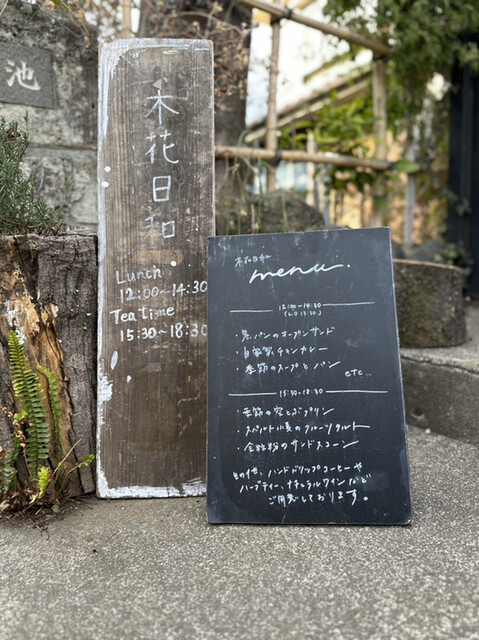 池
木花日和
Lunch
12:00~14:30
Tea time
15:30~18:30
木花日和
menu.
12:00~14:30
(L.O 13:30)
・黒パンのオープンサンド
・自家製チキンカレー
・季節のスープとパン
etc...
15:30-18:30
・季節の
プリン
・スペルト小麦のフルーツタルト
・全粒粉のサンドスコーン
その他、ハンドドリップコーヒーや
ハーブティー、ナチュラルワインなど
ご用意しております。